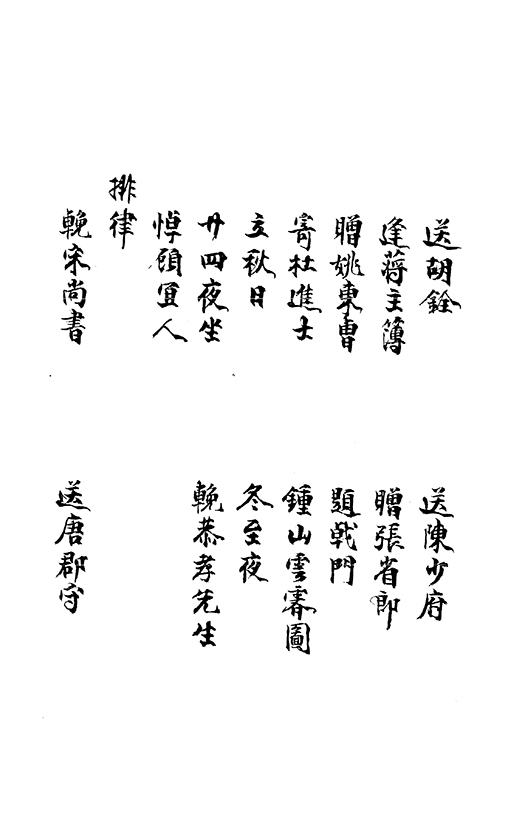 送胡銓
送陳少府
逢蔣主簿
贈張省郎
贈姚東曹
題戟門
寄杜進士
鍾山雲霽圖
立秋日
冬至夜
廿四夜坐
輓恭孝先生
悼顧宜人
排律
輓宋尚書
送唐郡守